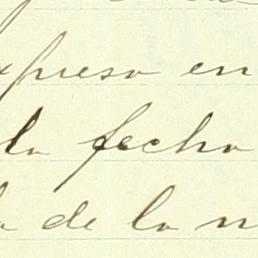 expresa en
la fecha
de la